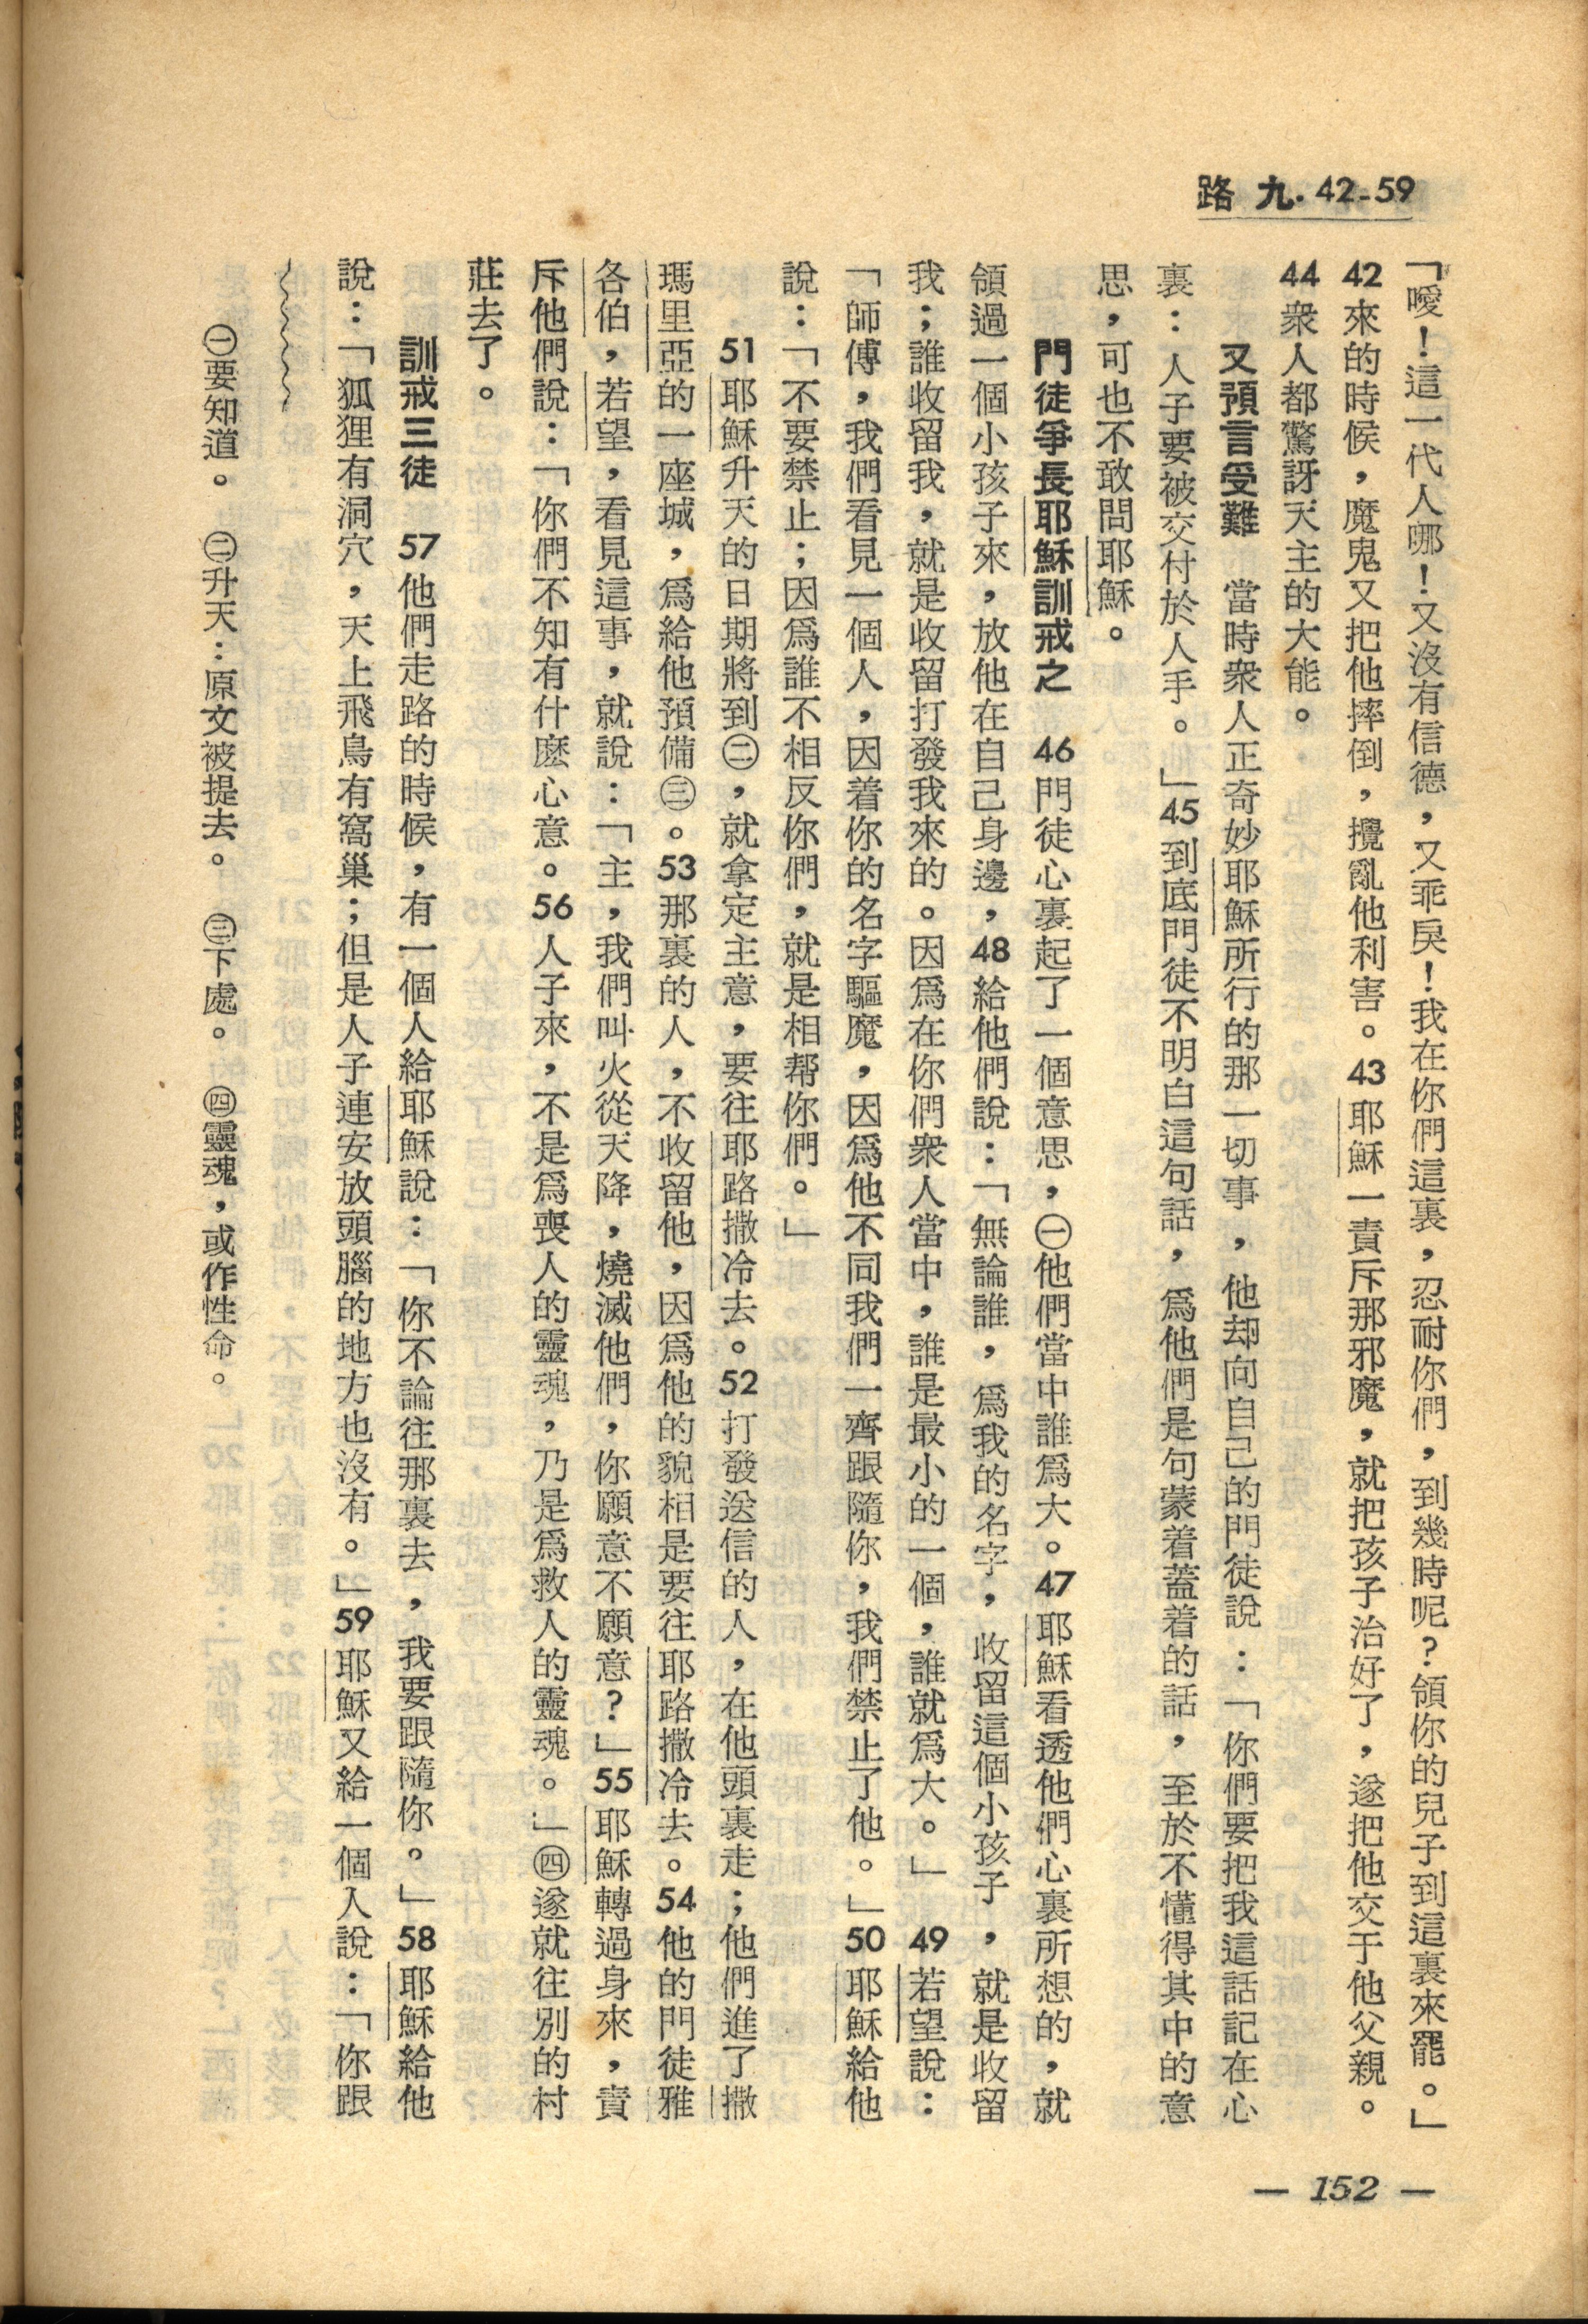 路 九. 42-59
「噯！這一代人哪！又沒有信德，又乖戾！我在你們這裏，忍耐你們，到幾時呢？領你的兒子到這裏來罷。」
42來的時候，魔鬼又把他摔倒，攪亂他利害。43耶穌一責斥那邪魔，就把孩子治好了，遂把他交于他父親。
44衆人都驚訝天主的大能。
又預言受難　當時衆人正奇妙耶穌所行的那一切事，他却向自己的門徒說：「你們要把我這話記在心
裏：人子要被交付於人手。」45到底門徒不明白這句話，爲他們是句蒙着蓋着的話，至於不懂得其中的意
思，可也不敢問耶穌。
門徒爭長耶穌訓戒之　46門徒心裏起了一個意思，㊀他們當中誰爲大。47耶穌看透他們心裏所想的，就
領過一個小孩子來，放他在自己身邊，48給他們說：「無論誰，爲我的名字，收留這個小孩子，就是收留
我；誰收留我，就是收留打發我來的。因爲在你們衆人當中，誰是最小的一個，誰就爲大。」　49若望說：
「師傅，我們看見一個人，因着你的名字驅魔，因爲他不同我們一齊跟隨你，我們禁止了他。」50耶穌給他
說：「不要禁止；因爲誰不相反你們，就是相帮你們。」
51耶穌升天的日期將到㊁，就拿定主意，要往耶路撒冷去。52打發送信的人，在他頭裏走；他們進了撒
瑪里亞的一座城，爲給他預備㊂。53那裏的人，不收留他，因爲他的貌相是要往耶路撒冷去。54他的門徒雅
各伯，若望，看見這事，就說：「主，我們叫火從天降，燒滅他們，你願意不願意？」55耶穌轉過身來，責
斥他們說：「你們不知有什麽心意。56人子來，不是爲喪人的靈魂，乃是爲救人的靈魂。」㊃遂就往別的村
莊去了。
訓戒三徒　57他們走路的時候，有一個人給耶穌說：「你不論往那裏去，我要跟隨你。」58耶穌給他
說：「狐狸有洞穴，天上飛鳥有窩巢；但是人子連安放頭腦的地方也沒有。」59耶穌又給一個人說：「你跟
㊀要知道。　㊁升天：原文被提去。　㊂下處。　㊃靈魂，或作性命。
— 152 —